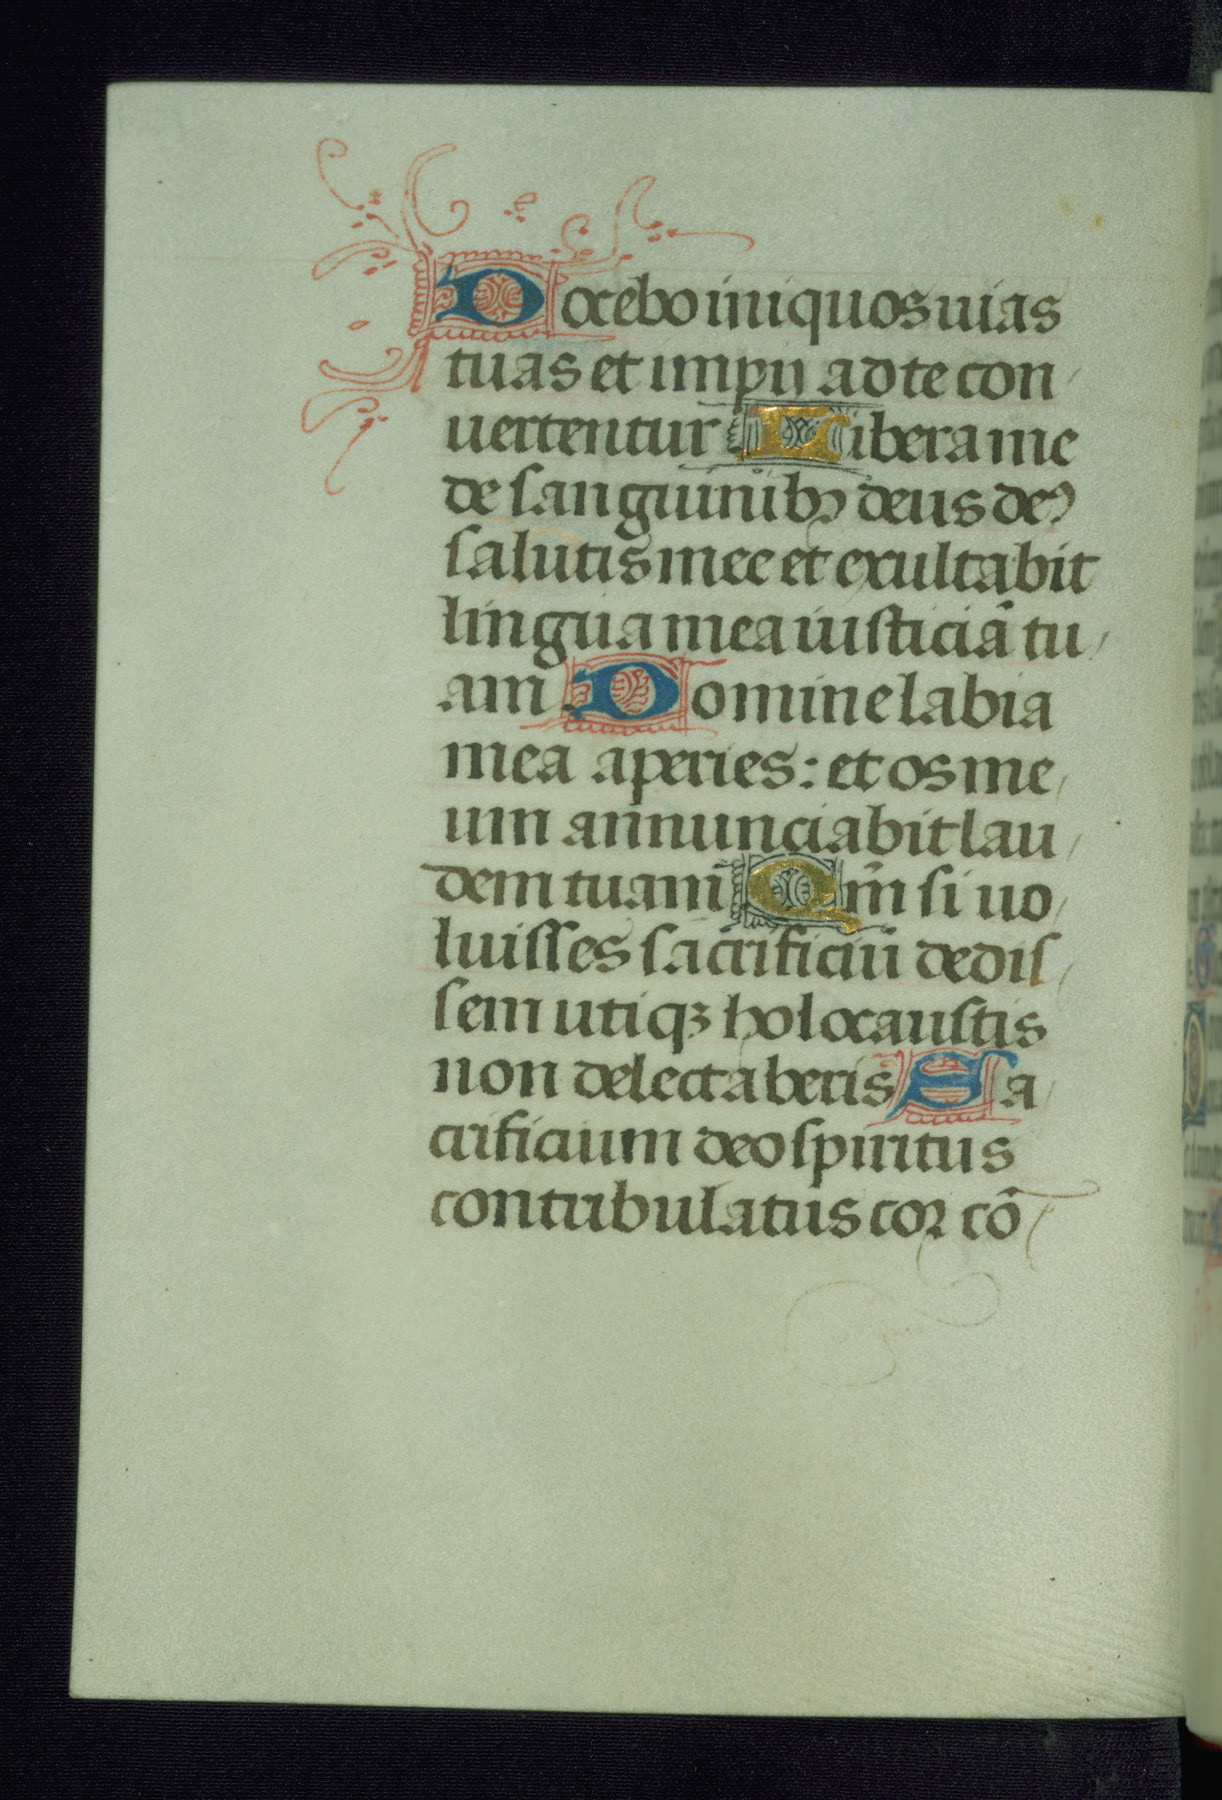 Docebo iniquos uias
tuas et impii ad te con
uertentur Libera me
de sanguinibꝫ deus deꝰ
salutis mee et exultabit
lingua mea iusticiā tu
am Domine labia
mea aperies: et os me
um annunciabit lau
dem tuam Qm̄ si uo
luisses sacrificiū dedis
sem utiqꝫ holocaustis
non delectaberis Sa
crificium deo spiritus
contribulatus cor cō